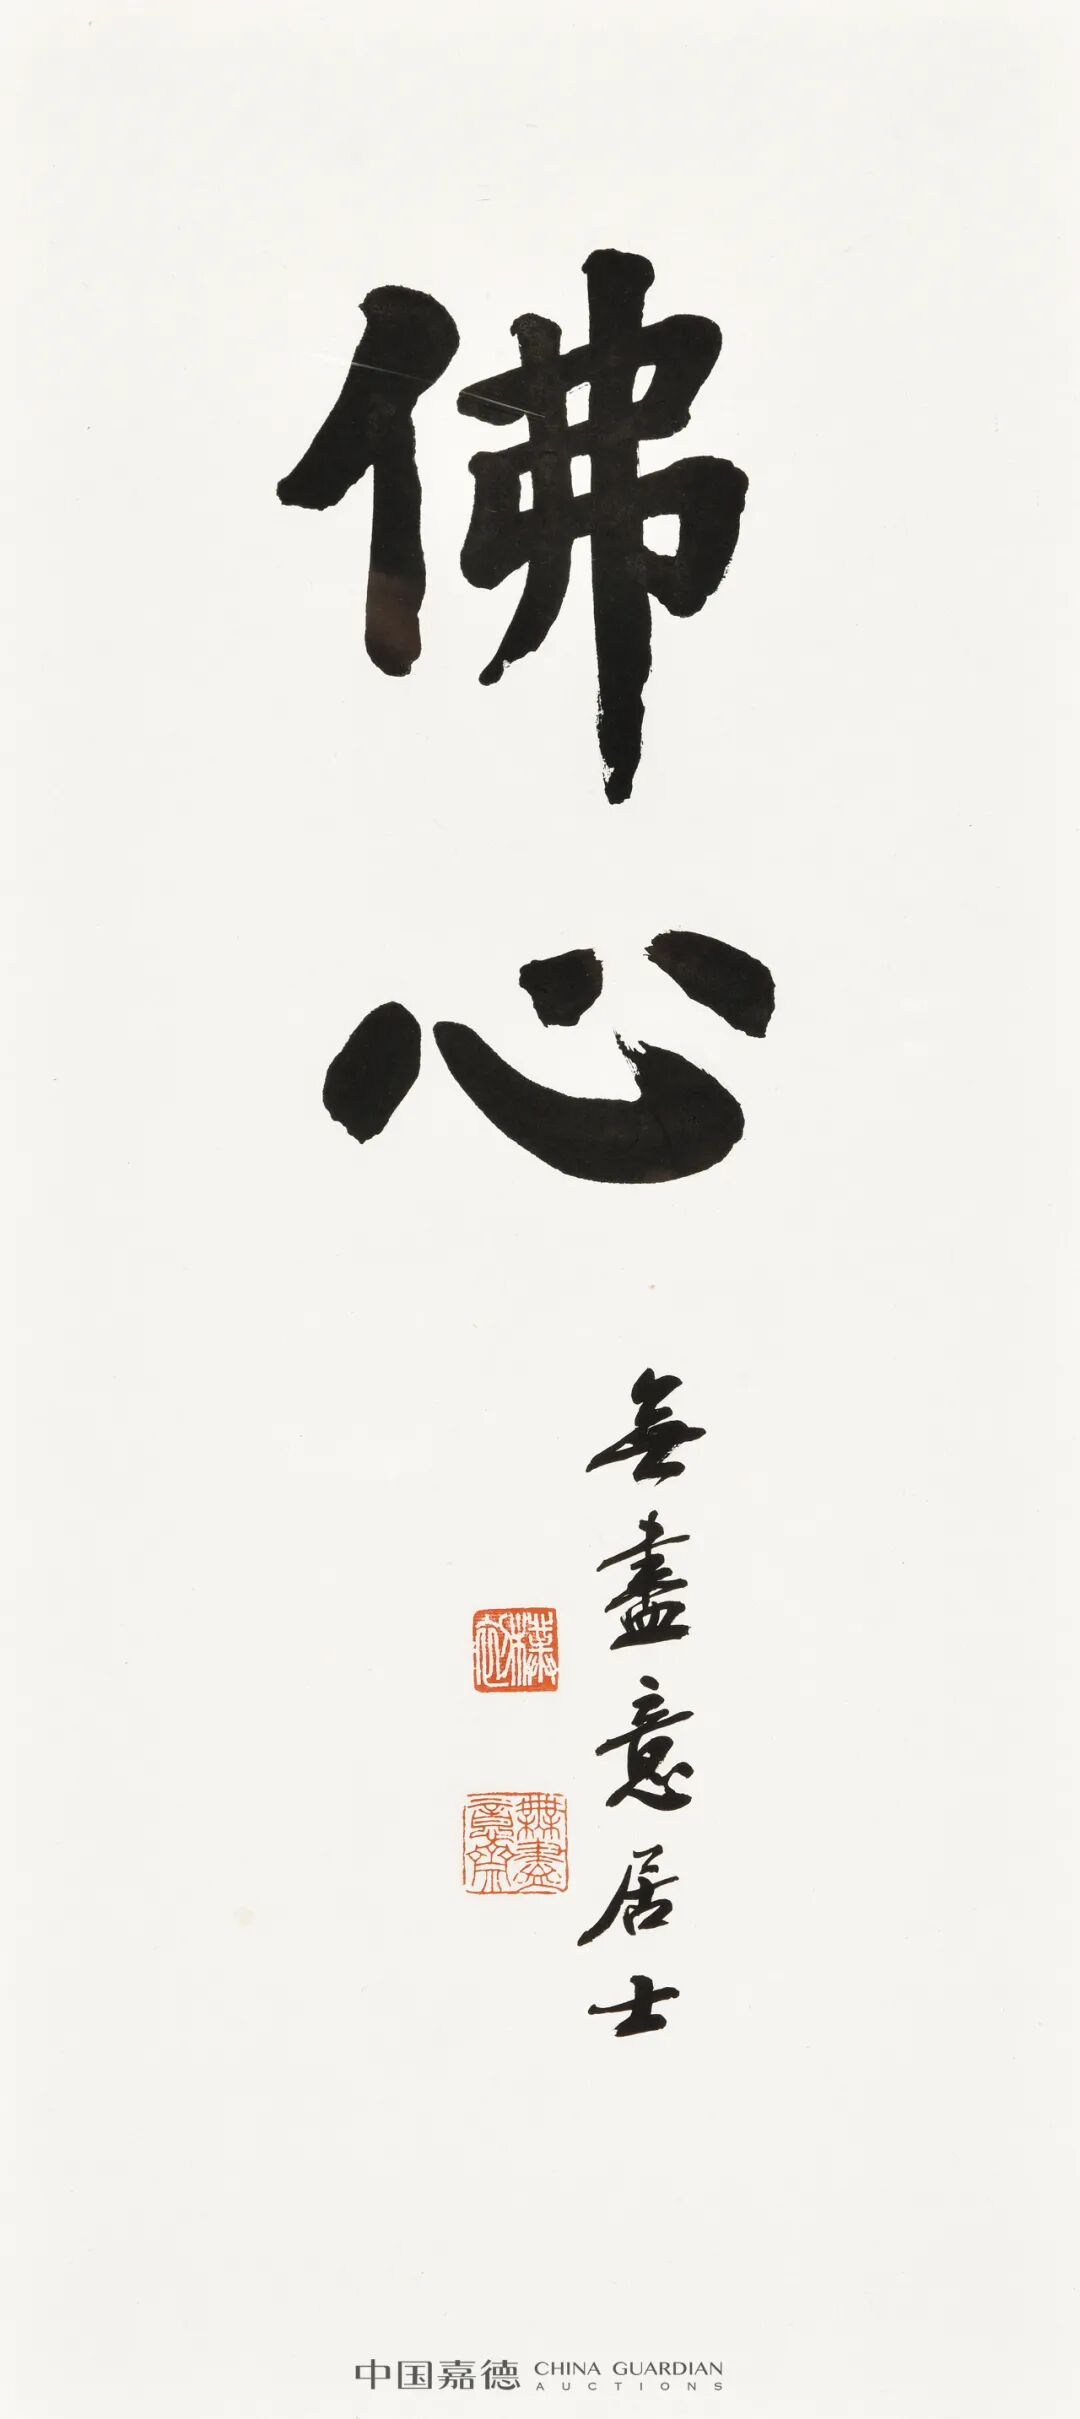 佛心
無盡意居士
樸初
無盡意齋
中国嘉德 CHINA GUARDIAN
AUCTIONS